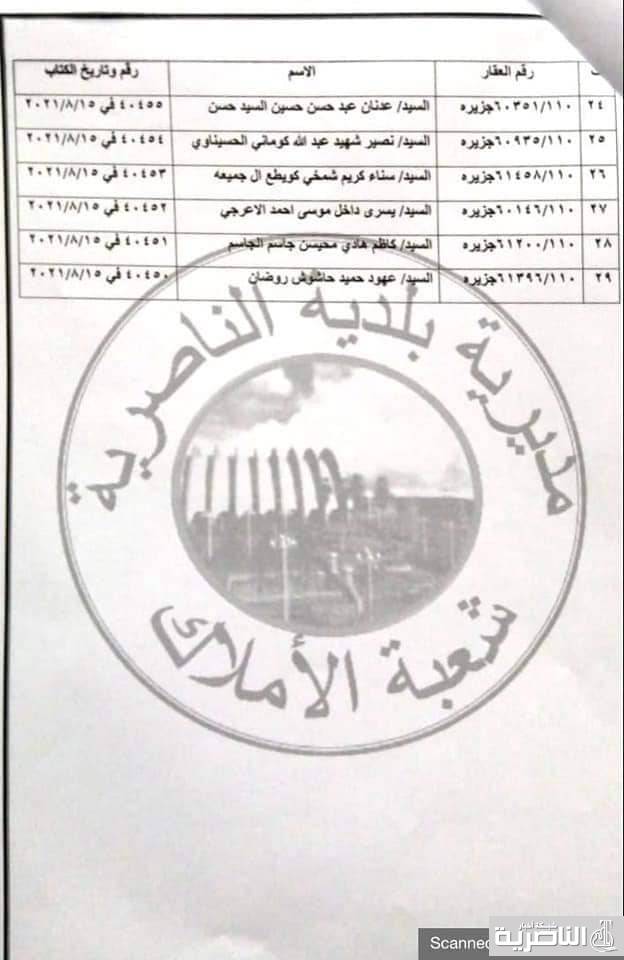 ت رقم العقار الاسم رقم وتاريخ الكتاب
٢٤ ٦٠٣٥١/١١٠جزيره السيد/ عدنان عبد حسن حسين السيد حسن ٤٠٤٥٥ في ٢٠٢١/٨/١٥
٢٥ ٦٠٩٣٥/١١٠جزيره السيد/ نصير شهيد عبد الله كوماني الحسيناوي ٤٠٤٥٤ في ٢٠٢١/٨/١٥
٢٦ ٦١٤٥٨/١١٠جزيره السيد/ سناء كريم شمخي كويطع ال جميعه ٤٠٤٥٣ في ٢٠٢١/٨/١٥
٢٧ ٦٠١٤٦/١١٠جزيره السيد/ يسرى داخل موسى احمد الاعرجي ٤٠٤٥٢ في ٢٠٢١/٨/١٥
٢٨ ٦١٢٠٠/١١٠جزيره السيد/ كاظم هادي محيسن جاسم الجاسم ٤٠٤٥١ في ٢٠٢١/٨/١٥
٢٩ ٦١٣٩٦/١١٠جزيره السيد/ عهود حميد حاشوش روضان ٤٠٤٥٠ في ٢٠٢١/٨/١٥
مديرية بلدية الناصرية
شعبة الأملاك
Scanned
شبكة أخبار
الناصرية